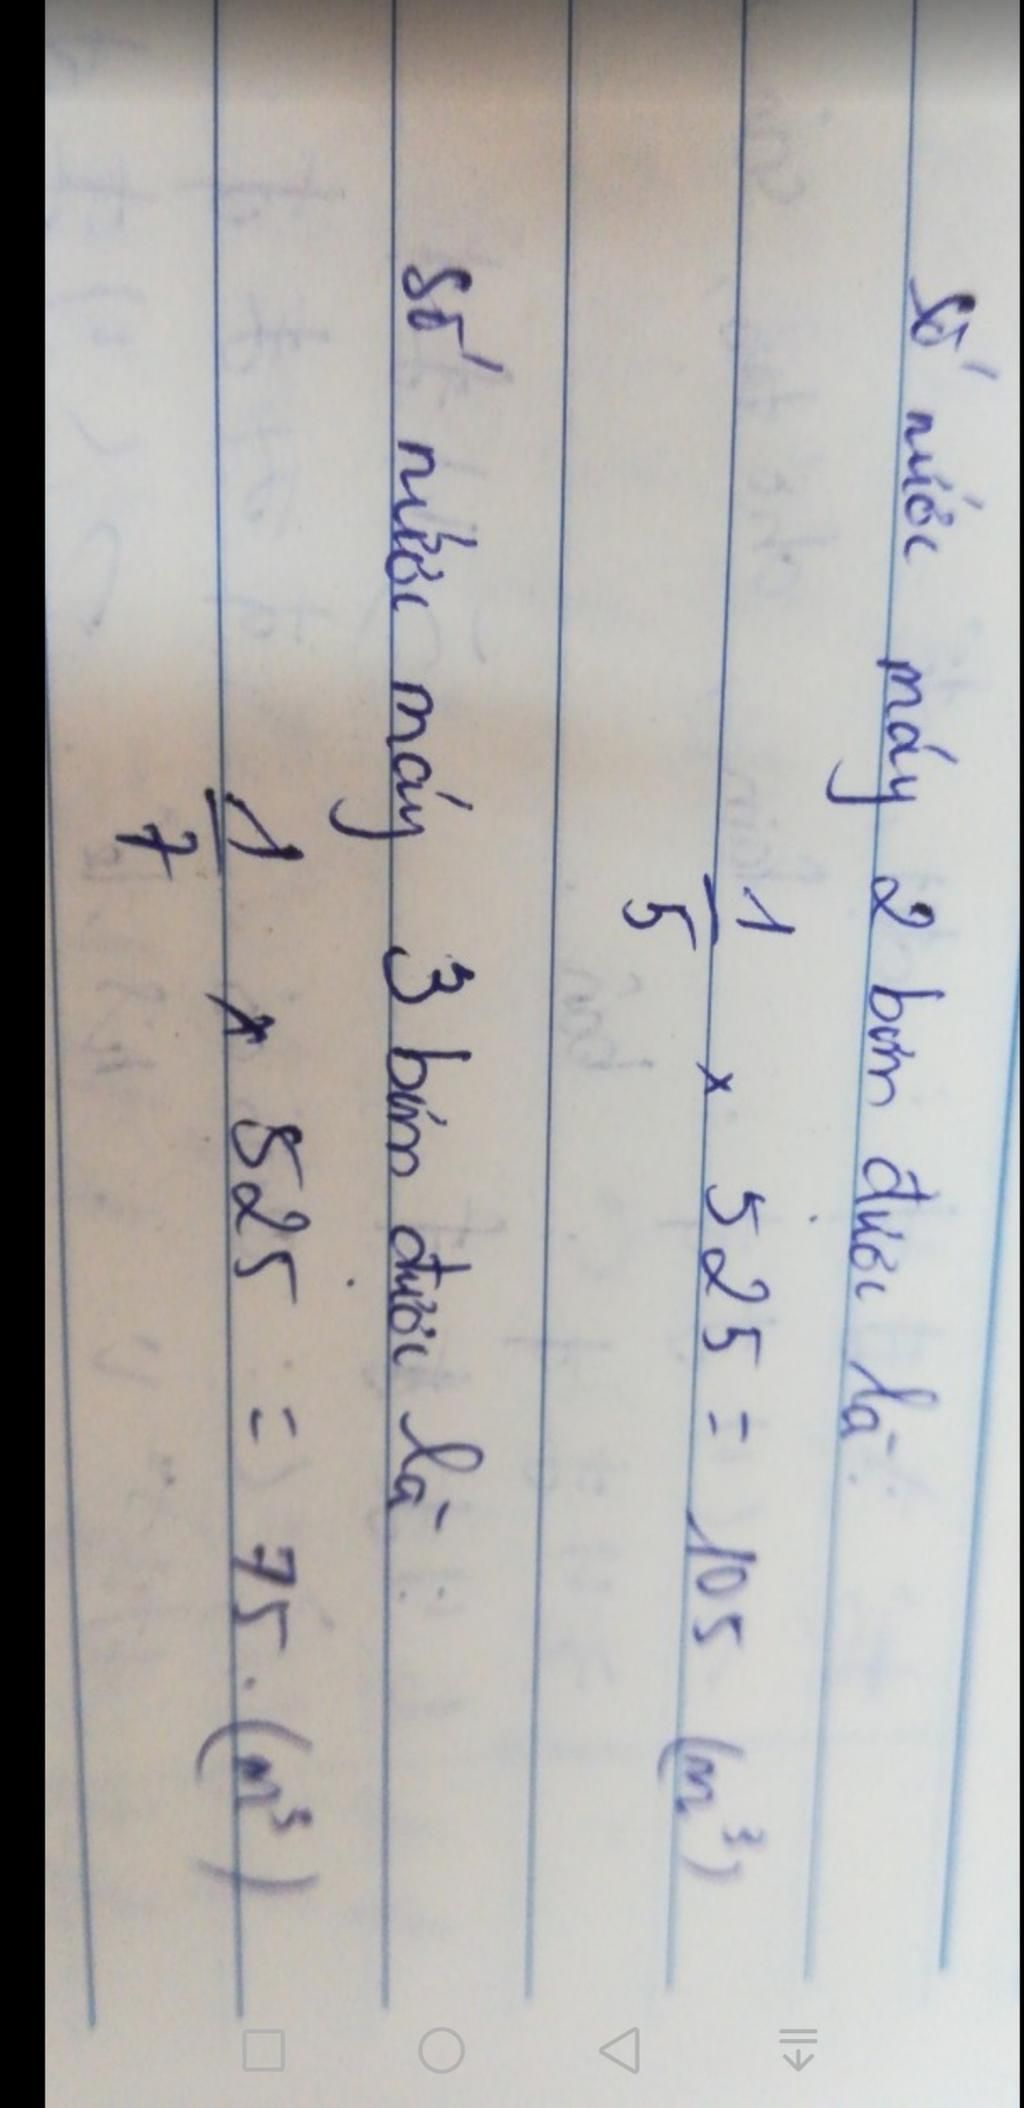 Số nước máy 2 bơm được là:
1/5 × 525 = 105 (m³)
Số nước máy 3 bơm được là:
1/7 × 525 = 75 (m³)